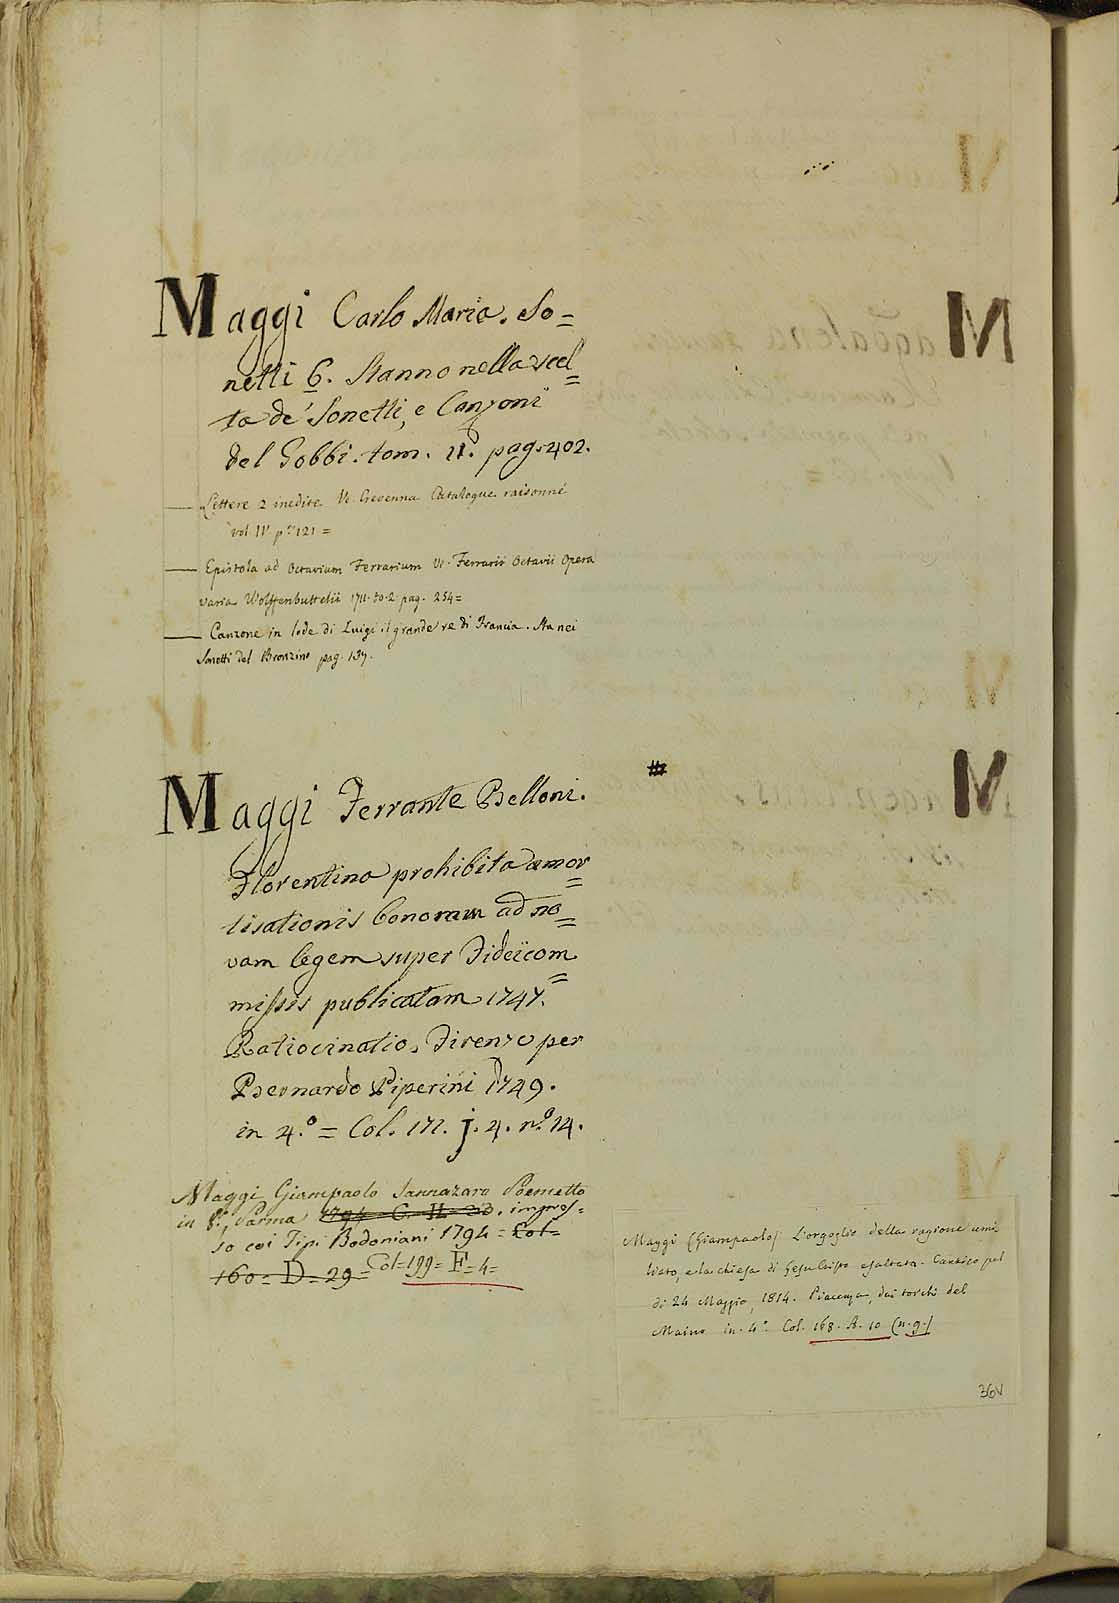 Maggi Carlo Maria. So=
netti 6. Stanno nella scel=
ta de' Sonetti, e Canzoni
del Gobbi. tom. II. pag. 402.
— Lettere 2 inedite V. Crevenna Catalogue raisonné
vol IV p. 121 =
— Epistola ad Octavium Ferrarium V. Ferrarii Octavii Opera
varia Wolffenbuttelii 1711. to. 2 pag. 254=
— Canzone in lode di Luigi il grande re di Francia. Sta nei
Sonetti del Bronzino pag. 137.
Maggi Ferrante Belloni.
Florentina prohibita amor=
tisationis bonorum ad no=
vam legem super Fideicom=
missis publicatam 1747.
Ratiocinatio. Firenze per
Bernardo Piperini 1749.
in 4.º = Col. 171. j. 4. n.º 14.
Maggi Giampaolo Sannazaro Poemetto
in 8., Parma 1794 C. H. 20. impres=
so coi Tipi Bodoniani 1794 = Col=
160 = D = 29 = Col = 199 = F = 4 =
#
Maggi (Giampaolo) L'orgoglio della ragione umi
liato, e la chiesa di Gesu Cristo esaltata. Cantico pel
di 24 Maggio, 1814. Piacenza, dai torchi del
Maino in. 4º. Col. 168. A. 10 (n. 9.)
36V